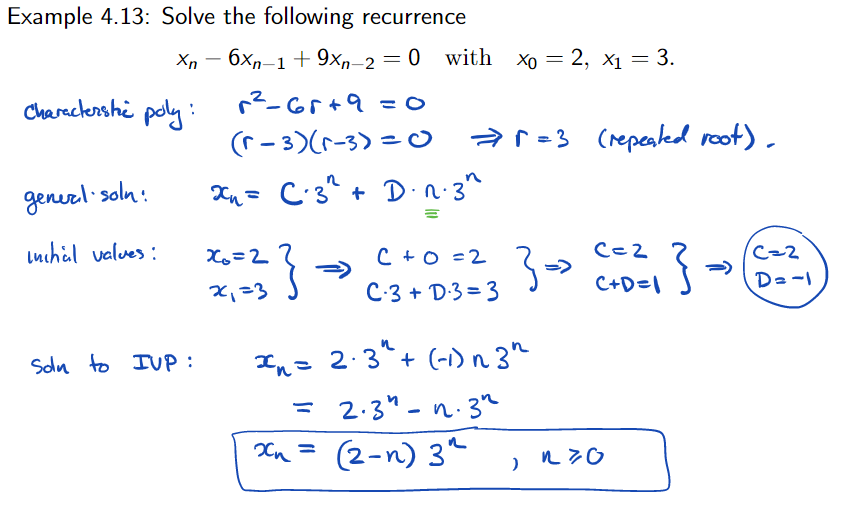 Example 4.13: Solve the following recurrence
xₙ − 6xₙ₋₁ + 9xₙ₋₂ = 0 with x₀ = 2, x₁ = 3.
Characteristic poly: r² − 6r + 9 = 0
(r − 3)(r − 3) = 0 ⇒ r = 3 (repeated root).
general soln: xₙ = C·3ⁿ + D·n·3ⁿ
initial values: x₀ = 2 } ⇒ C + 0 = 2 } ⇒ C = 2 } ⇒ C = 2
x₁ = 3 C·3 + D·3 = 3 C + D = 1 D = −1
Soln to IVP: xₙ = 2·3ⁿ + (−1) n 3ⁿ
= 2·3ⁿ − n·3ⁿ
xₙ = (2 − n) 3ⁿ , n ⩾ 0